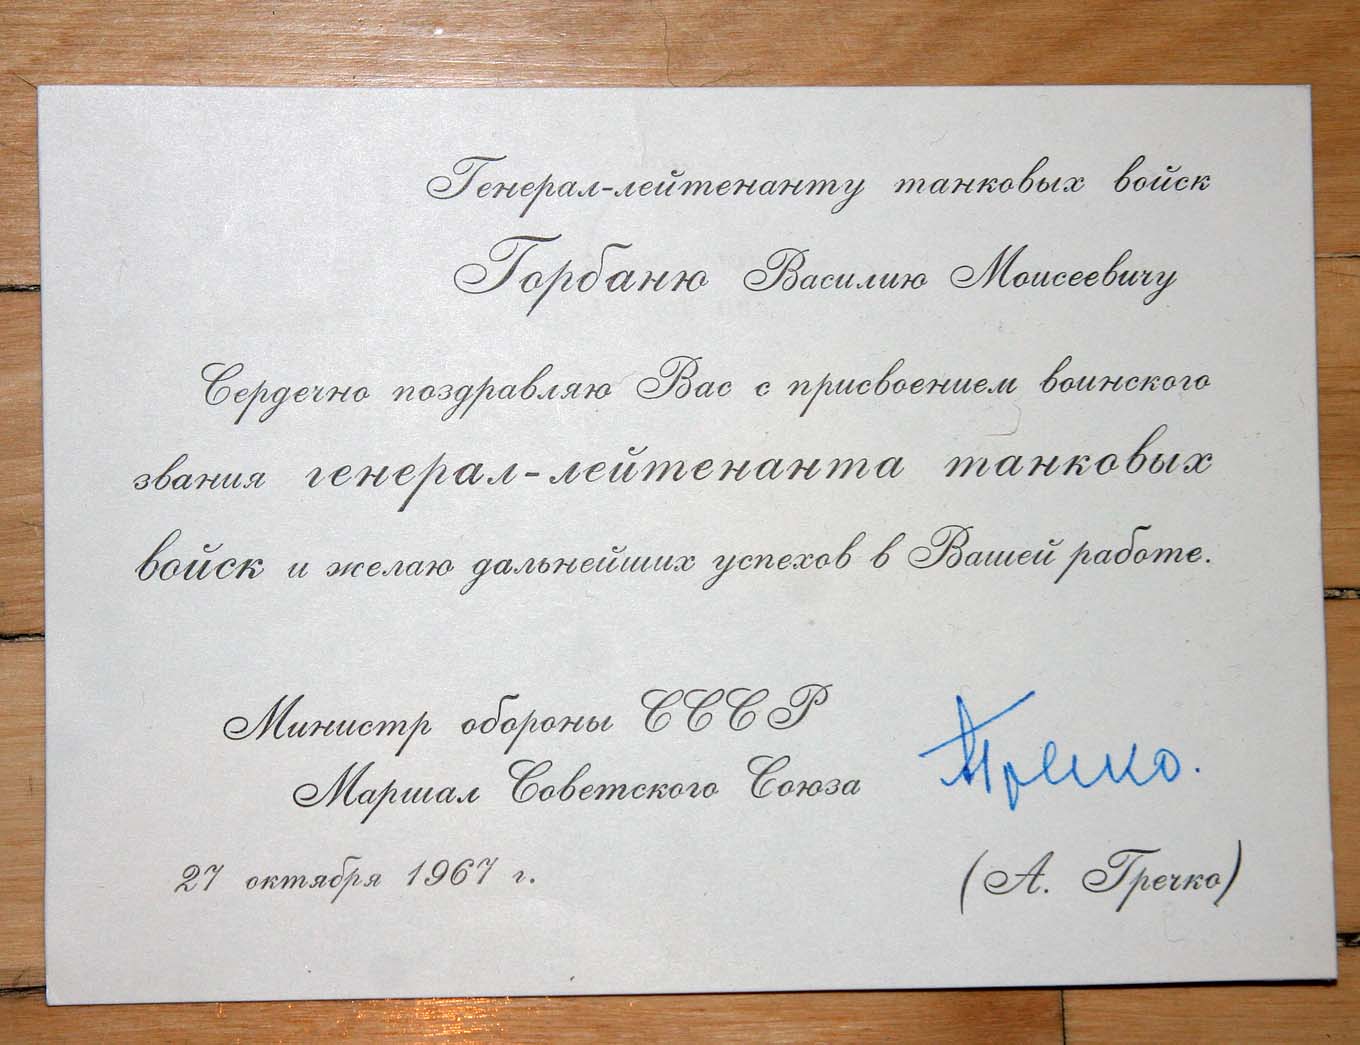 Генерал-лейтенанту танковых войск
Горбаню Василию Моисеевичу
Сердечно поздравляю Вас с присвоением воинского
звания генерал-лейтенанта танковых
войск и желаю дальнейших успехов в Вашей работе.
Министр обороны СССР
Маршал Советского Союза
АГречко.
27 октября 1967 г.
(А. Гречко)